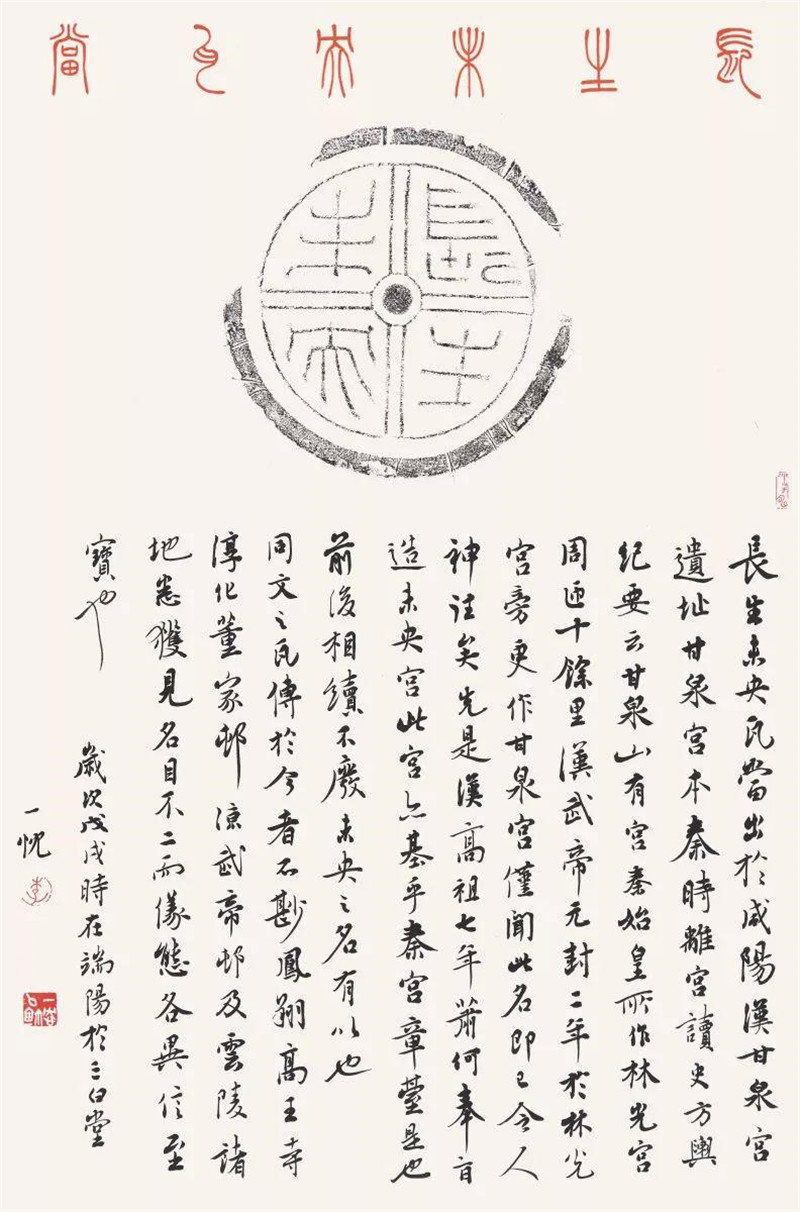 長生未央瓦當
長生
未央
長生未央瓦當出於咸陽漢甘泉宮
遺址甘泉宮本秦時離宮讀史方輿
紀要云甘泉山有宮秦始皇所作林光宮
周匝十餘里漢武帝元封二年於林光
宮旁更作甘泉宮僅聞此名即已令人
神往矣先是漢高祖七年蕭何奉旨
造未央宮此宮亦基乎秦宮章臺是也
前後相續不廢未央之名有以也
同文之瓦傳於今者不尠鳳翔高王寺
淳化董家邨涼武帝邨及雲陵諸
地悉獲見名目不二而儀態各異信至
寶也
歲次戊戌時在端陽於三白堂
一忱
李